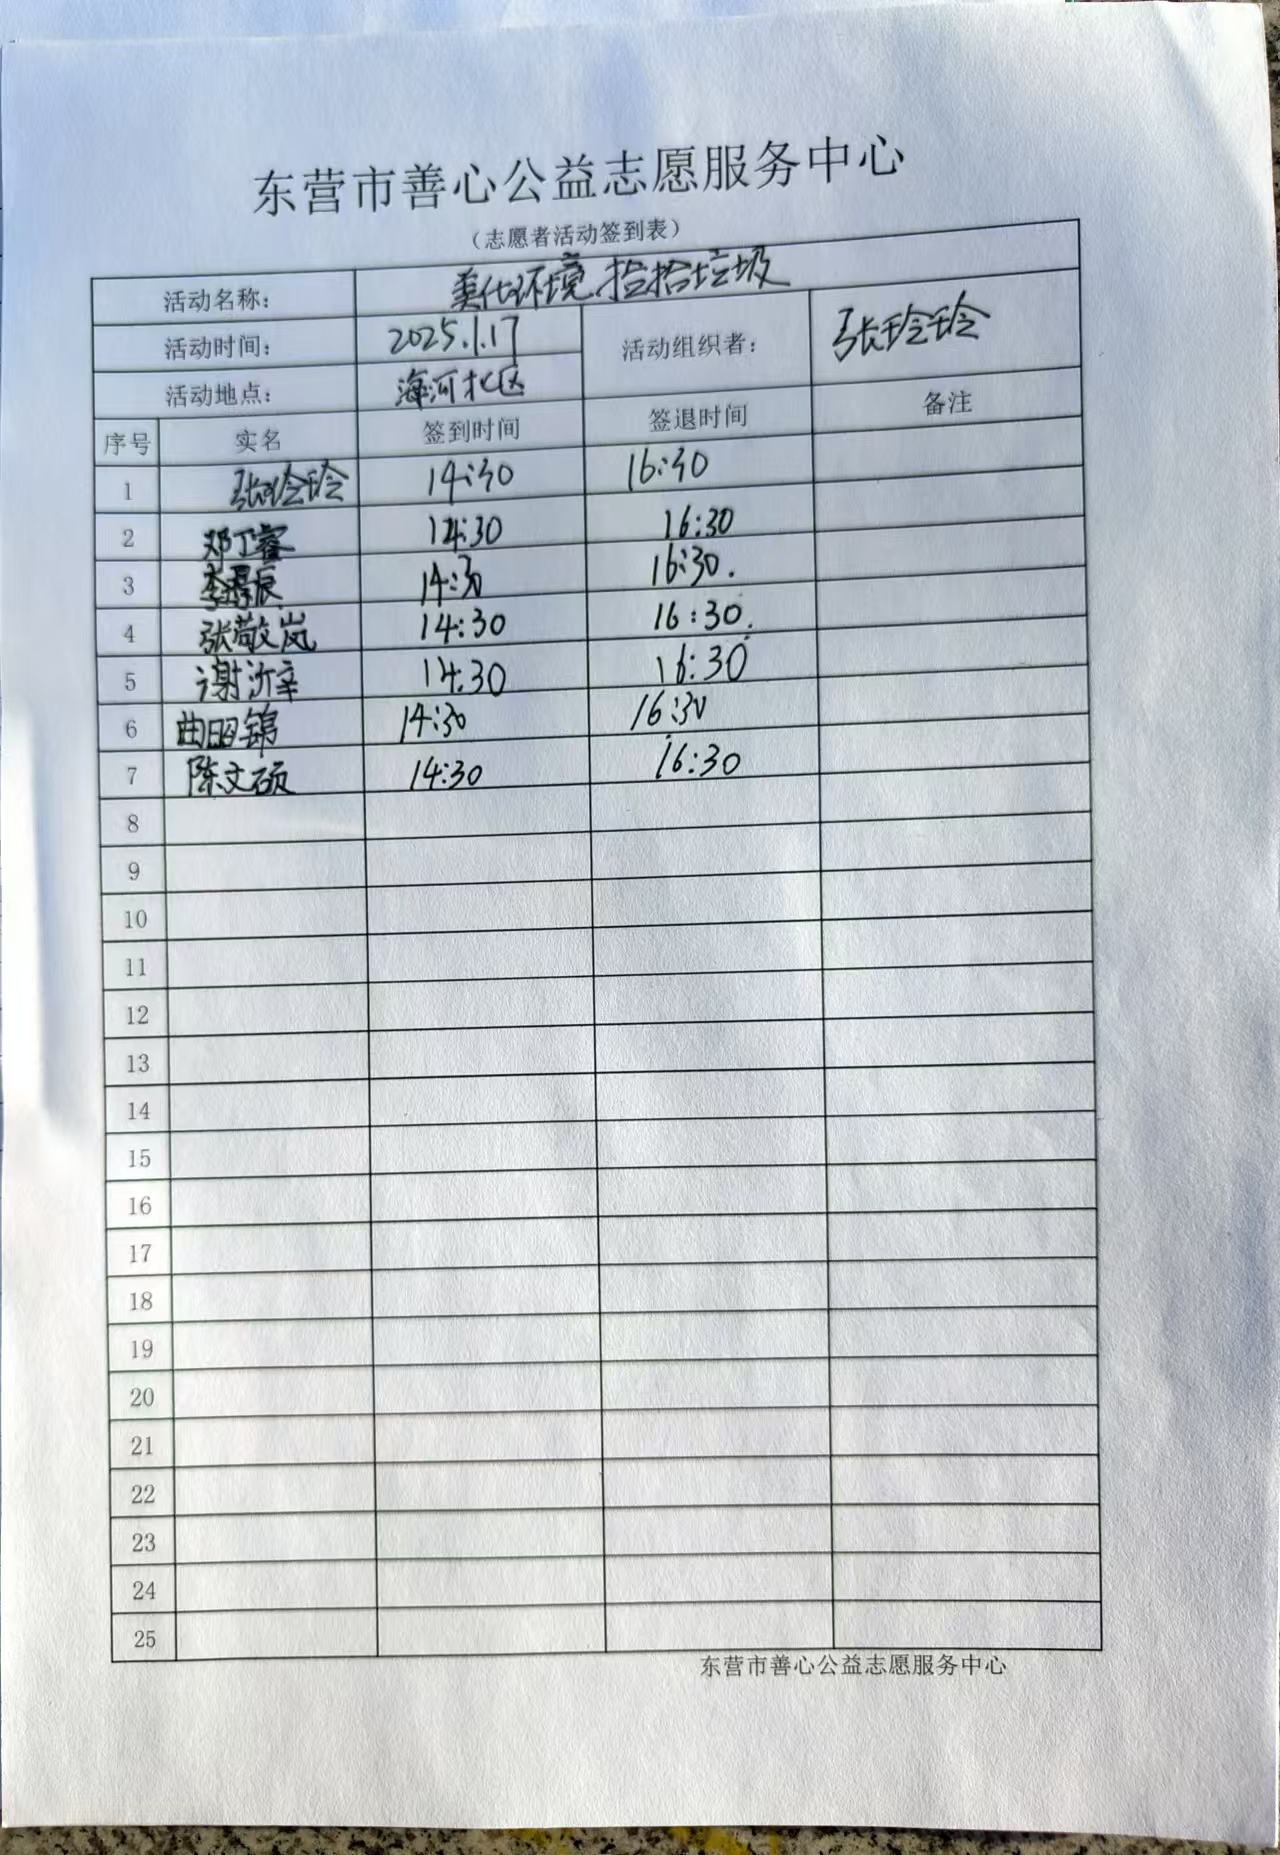 东营市善心公益志愿服务中心
（志愿者活动签到表）
活动名称： 美化环境 捡拾垃圾
活动时间： 2025.1.17 活动组织者： 张玲玲
活动地点： 海河北区
序号 实名 签到时间 签退时间 备注
1 张玲玲 14:30 16:30
2 邓丁睿 14:30 16:30
3 李 辰 14:30 16:30.
4 张敬岚 14:30 16:30.
5 谢沂辛 14:30 16:30
6 曲昭锦 14:30 16:30
7 陈文硕 14:30 16:30
8
9
10
11
12
13
14
15
16
17
18
19
20
21
22
23
24
25
东营市善心公益志愿服务中心